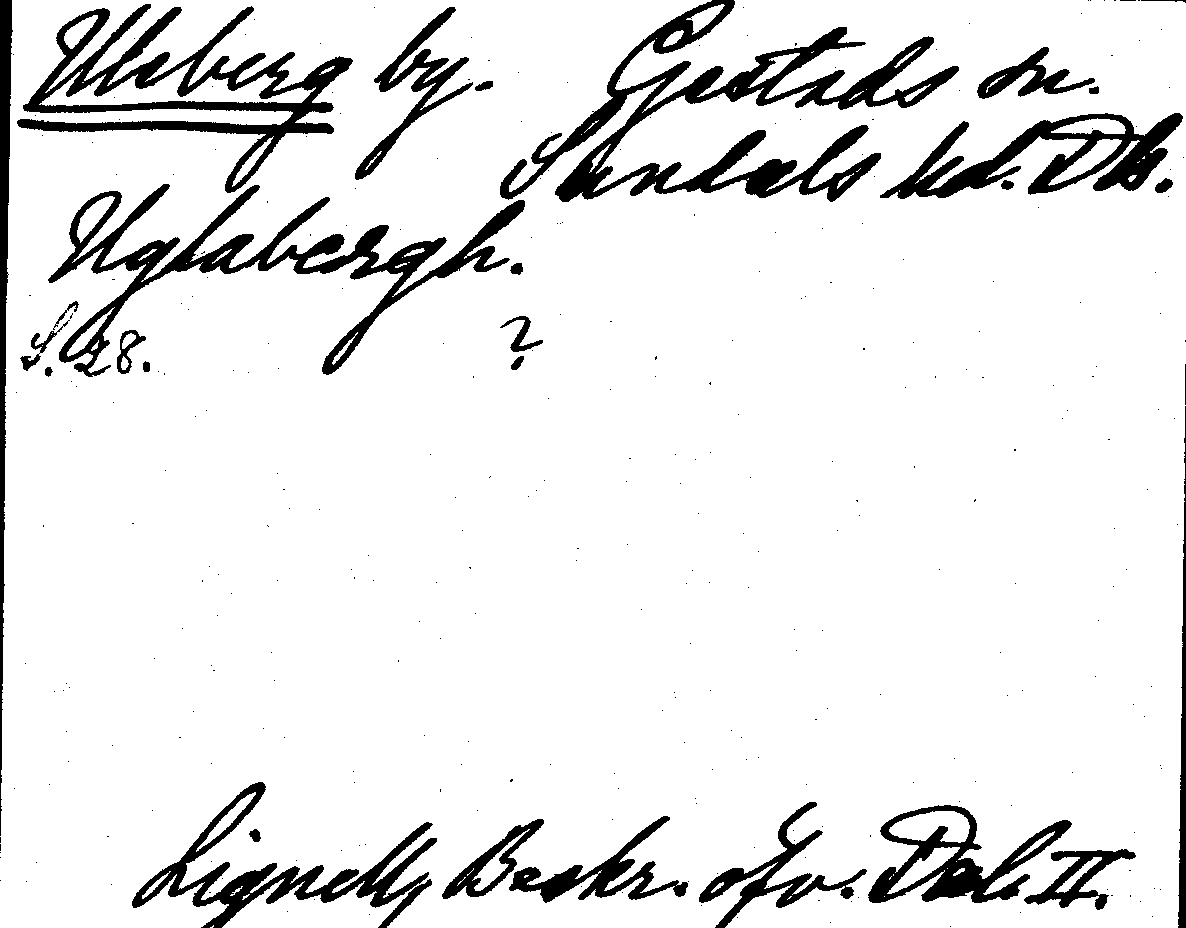 Uleberg by. Gestads sn.
Sundals hd. Dls.
Uglabergh.
S. 28. ?
Lignell, Beskr. öfv. Dal. II.